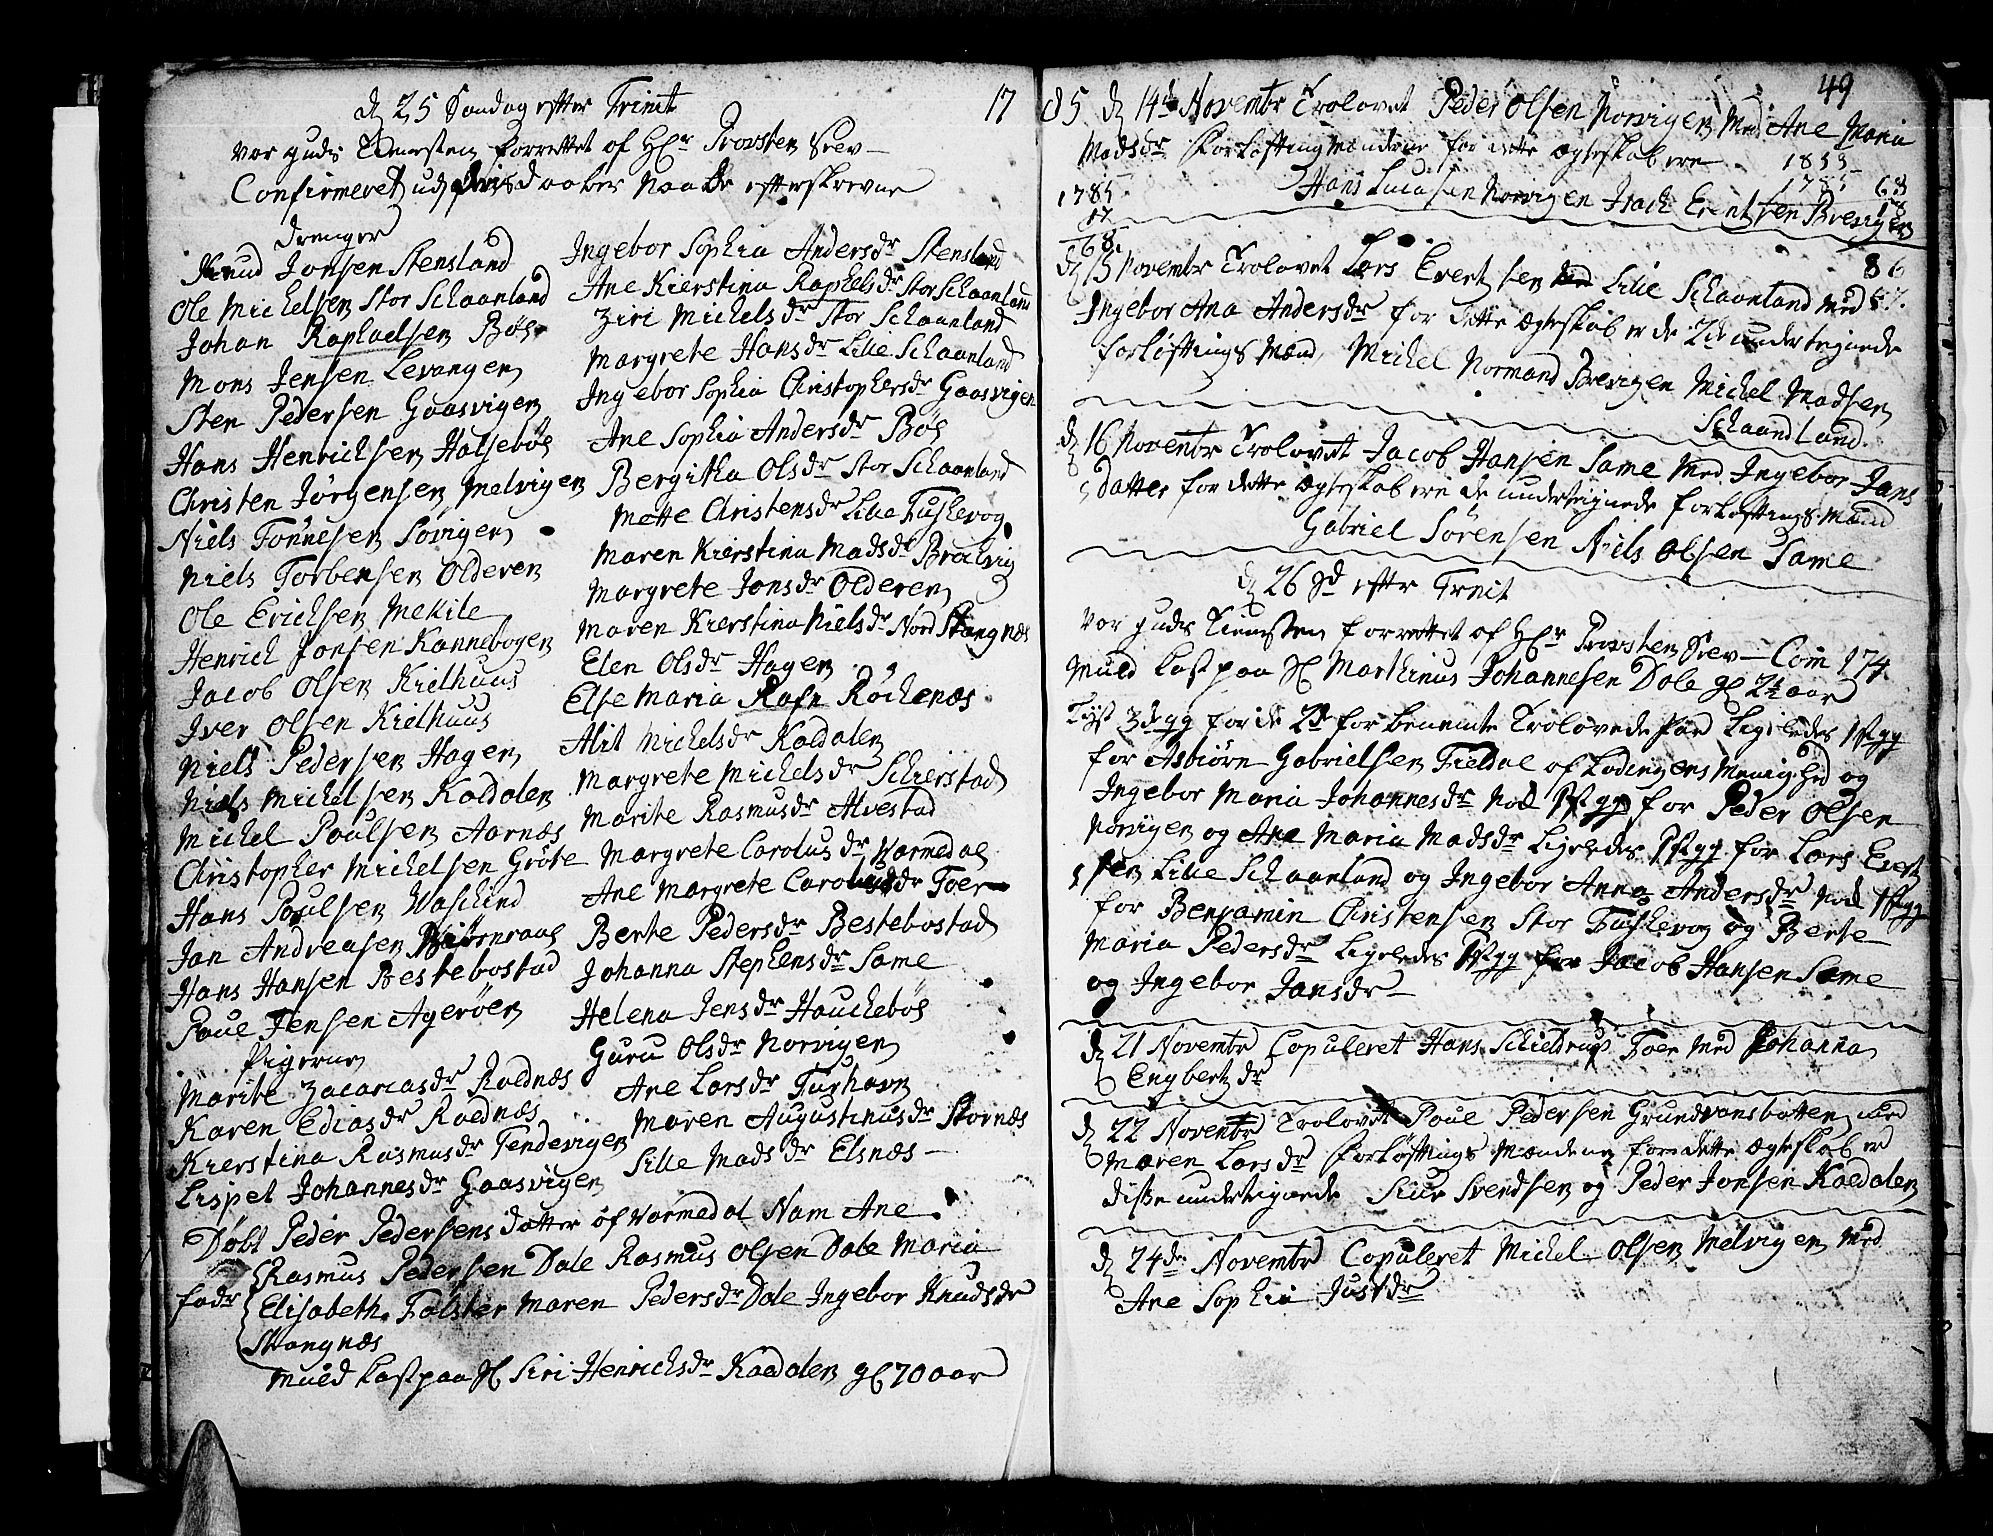 d 25 Søndag efter Trinit 17
var guds tienesten forrettet af Hr Provsten Srev
Confirmeret udj daaben naade efterskrevne
drenger
Knud Jonsen Stensland
Ole Michelsen Stor Schaanland
Johan Raphaelsen Bøs
Mons Jensen Levangen
Sten Pedersen Gaasvigen
Hans Henrichsen Halsebøs
Christen Jørgensen Melvigen
Niels Tønnesen Sørvigen
Niels Torbensen Olderen
Ole Erichsen Mekile
Henrich Jonsen Kannebogen
Jacob Olsen Kielhuus
Iver Olsen Kielhuus
Niels Pedersen Hagen
Niels Michelsen Kaldalen
Michel Poulsen Aarnæs
Christopher Michelsen Grøte
Hans Poulsen
Jan Andreasen
Hans Hansen Bestebostad
Poul Jensen Agerøen
Pigerne
Marite Zacariasdr Roednæs
Karen Ediasdr Roednæs
Kierstina Rasmusdr Tendevigen
Lispet Johannesdr Gaasvigen
Ingebor Sophia Andersdr Stensland
Ane Kierstina Raphelsdr Stor Schaanland
Ziri Michelsdr Stor Schaanland
Margrete Hansdr Lille Schaanland
Ingebor Sophia Christophersdr Gaasvigen
Ane Sophia Andersdr Bøs
Bergitha Olsdr Stor Schaanland
Mette Christensdr Lille Fuskevog
Maren Kierstina Madsdr
Margrete Jonsdr Olderen
Maren Kierstina Nielsdr Nord Stangnæs
Elen Olsdr Hagen
Else Maria Rafn Røckenæs
Alit Michelsdr Kaldalen
Margrete Michelsdr Schierstad
Marite Rasmusdr Alvestad
Margrete Carolusdr Vormedal
Ane Margrete Carolusdr Foer
Berte Pedersdr Bestebostad
Johanna Stephensdr Same
Helena Jensdr Hauckebøs
Guru Olsdr Norvigen
Ane Larsdr Fushavn
Maren Augustinusdr Stornæs
Sille Madsdr Elsnæs
Døbt Peder Pedersens datter of Vormedal Nam Ane
fadr Rasmus Pedersen Dale Rasmus Olsen Dale Maria
Elisabeth Falster Maren Pedersdr Dale Ingebor Knudsdr
Stangnæs
Muld kast paa Sl Siri Henrichsdr Kaldalen gl 70 aar
49
85 d 14de Novembr Trolovet Peder Olsen Norvigen Med Ane Maria
Madsdr Forløftingmændene for dette Ægteskab ere 1853
Hans Lucasen Norvigen Isach Erentsen Brevigen 1785 68
1785
17
68
d 15 Novembr Trolovet Lars Evertsen Lille Schaanland Med 86
Ingebor Ana Andersdr for dette Ægteskab er de 2de undertegnede
forløftings Mænd Michel Normand Brevigen Michel Madsen
Schaandland
d 16 Novembr Trolovet Jacob Hansen Same Med Ingebor Jans
datter for dette Ægteskab ere de undertegnede forløftings Mænd
Gabriel Sørensen Niels Olsen Same
d 26 Sd efter Trinit
var guds tienesten forrettet af Hr Provsten Srev Com 174
Muld kast paa Sl Marthinus Johannesen Dale gl 2½ aar
Lyst 3de gg for de 2de for benemte Trolovede par Ligeledes 1st gg
for Asbiørn Gabrielsen Fieldal of Lødingens Menighed og
Ingebor Maria Johannesdr nok 1st gg for Peder Olsen
Norvigen og Ane Maria Madsdr Ligeledes 1st gg for Lars Evert
sen Lille Schaanland og Ingebor Anna Andersdr nok 1st gg
for Benjamin Christensen Stor Fuskevog og Berte
Maria Pedersdr Ligeledes 1st gg for Jacob Hansen Same
og Ingebor Jansdr
d 21 Novembr Copuleret Hans Schieldrup Foer Med Johanna
Engbertzdr
d 22 Novembr Trolovet Poul Pedersen Grundvansbotten med
Maren Larsdr forløftings Mændene fore dette Ægteskab er
disse undertegnede Siur Svendsen og Peder Jonsen Kaldalen
d 24de Novembr Copuleret Michel Olsen Melvigen Med
Ane Sophia Justdr